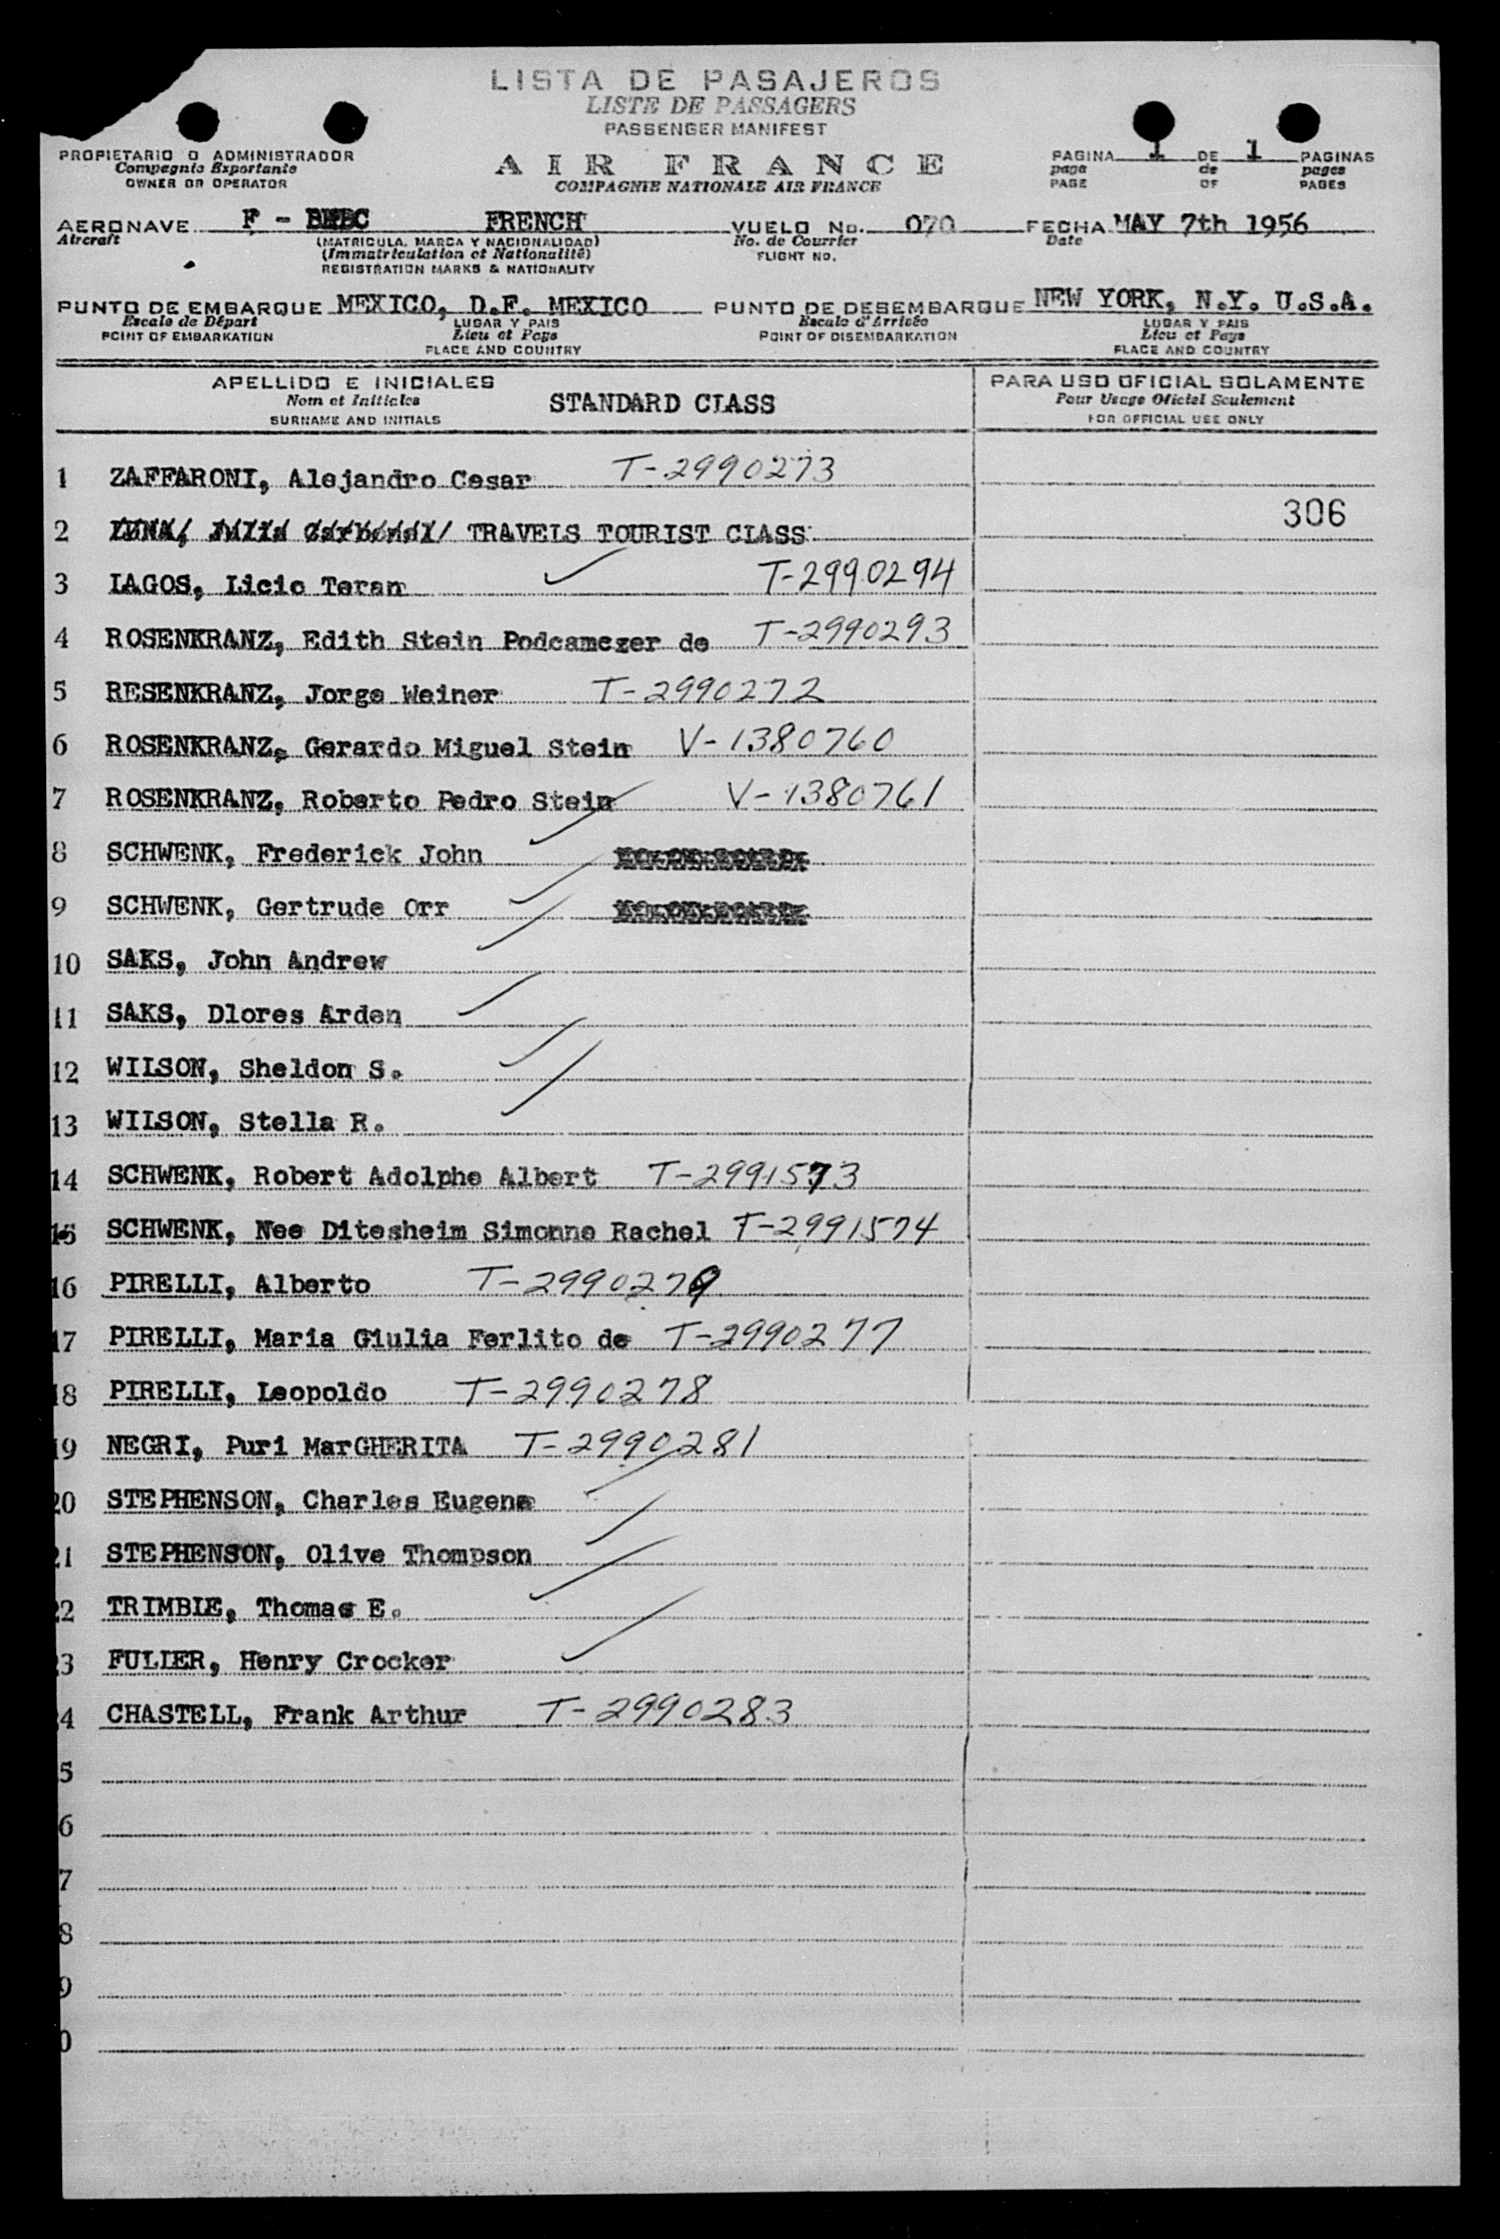 LISTA DE PASAJEROS
LISTE DE PASSAGERS
PASSENGER MANIFEST
PROPIETARIO O ADMINISTRADOR
Compagnie Exportante
OWNER OR OPERATOR
AIR FRANCE
COMPAGNIE NATIONALE AIR FRANCE
PAGINA 1 DE 1 PAGINAS
page de pages
PAGE OF PAGES
AERONAVE F - FRENCH VUELO No. 070 FECHA MAY 7th 1956
Aircraft (MATRICULA, MARCA Y NACIONALIDAD) No. de Courrier Date
(Immatriculation et Nationalité) FLIGHT NO.
REGISTRATION MARKS & NATIONALITY
PUNTO DE EMBARQUE MEXICO, D.F. MEXICO PUNTO DE DESEMBARQUE NEW YORK, N.Y. U.S.A.
Escale de Départ LUGAR Y PAIS Escale d'Arrivée LUGAR Y PAIS
POINT OF EMBARKATION Lieu et Pays POINT OF DISEMBARKATION Lieu et Pays
PLACE AND COUNTRY PLACE AND COUNTRY
APELLIDO E INICIALES PARA USO OFICIAL SOLAMENTE
Nom et Initiales STANDARD CLASS Pour Usage Oficiel Seulement
SURNAME AND INITIALS FOR OFFICIAL USE ONLY
1 ZAFFARONI, Alejandro Cesar T-2990273
306
2 TRAVELS TOURIST CLASS
3 LAGOS, Licio Teran T-2990294
4 ROSENKRANZ, Edith Stein Podcamezer de T-2990293
5 RESENKRANZ, Jorge Weiner T-2990272
6 ROSENKRANZ, Gerardo Miguel Stein V-1380760
7 ROSENKRANZ, Roberto Pedro Stein V-1380761
8 SCHWENK, Frederick John
9 SCHWENK, Gertrude Orr
10 SAKS, John Andrew
11 SAKS, Dlores Arden
12 WILSON, Sheldon S.
13 WILSON, Stella R.
14 SCHWENK, Robert Adolphe Albert T-2991573
15 SCHWENK, Nee Ditesheim Simonne Rachel T-2991574
16 PIRELLI, Alberto T-2990279
17 PIRELLI, Maria Giulia Ferlito de T-2990277
18 PIRELLI, Leopoldo T-2990278
19 NEGRI, Puri MarGHERITA T-2990281
20 STEPHENSON, Charles Eugene
21 STEPHENSON, Olive Thompson
22 TRIMBLE, Thomas E.
3 FULLER, Henry Crocker
4 CHASTELL, Frank Arthur T-2990283
5
6
7
8
9
0